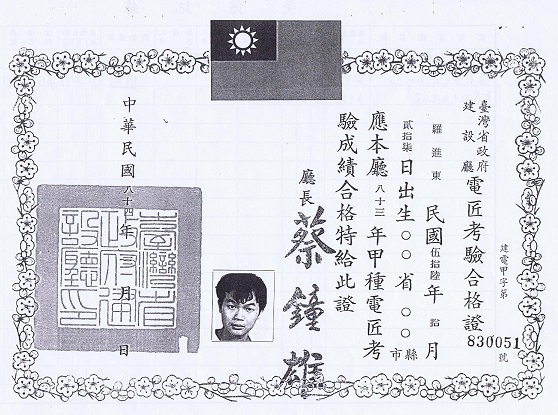 臺灣省政府建設廳電匠考驗合格證
建電甲字第830051號
羅進東 民國伍拾陸年拾月
貳拾柒日出生○○省○○縣市
應本廳八十三年甲種電匠考
驗成績合格特給此證
廳長 蔡鐘雄
中華民國八十四年 月 日
臺灣省政府建設廳印